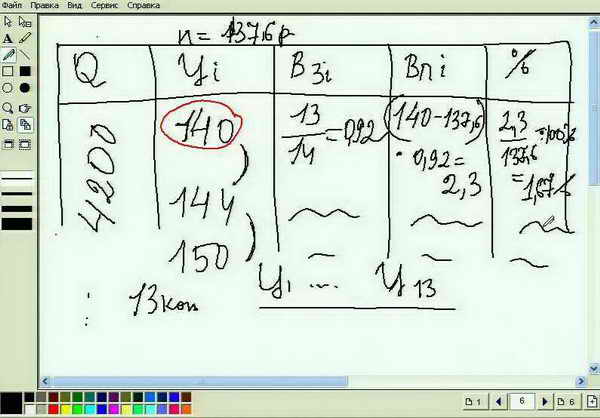 Файл Правка Вид Сервис Справка
n = 137,6 р
Q Цi Bзi Bпi %
4200 140 13/14 = 0,92 (140-137,6) · 0,92 = 2,3 2,3/137,6 · 100% = 1,67%
144
150
Ц1 ... Ц13
13 коп
1 6 6